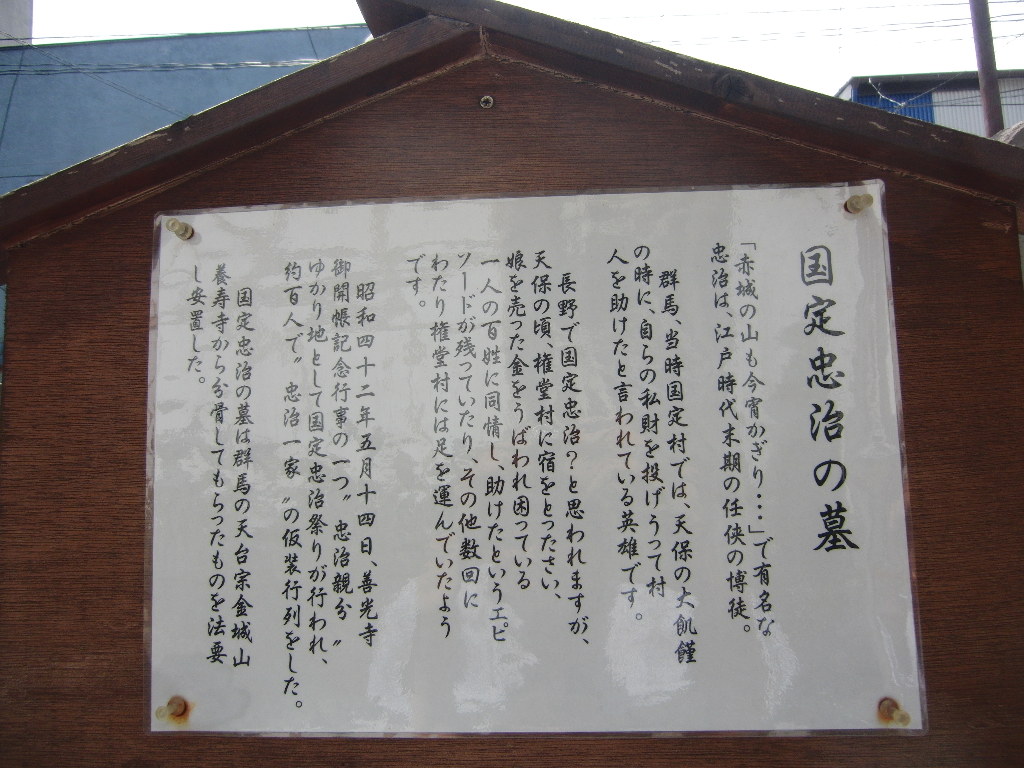 国定忠治の墓
「赤城の山も今宵かぎり・・・」で有名な
忠治は、江戸時代末期の任侠の博徒。
群馬、当時国定村では、天保の大飢饉
の時に、自らの私財を投げうって村
人を助けたと言われている英雄です。
長野で国定忠治？と思われますが、
天保の頃、権堂村に宿をとったさい、
娘を売った金をうばわれ困っている
一人の百姓に同情し、助けたというエピ
ソードが残っていたり、その他数回に
わたり権堂村には足を運んでいたよう
です。
昭和四十二年五月十四日、善光寺
御開帳記念行事の一つ〝忠治親分〟
ゆかり地として国定忠治祭りが行われ、
約百人で〝忠治一家〟の仮装行列をした。
国定忠治の墓は群馬の天台宗金城山
養寿寺から分骨してもらったものを法要
し安置した。